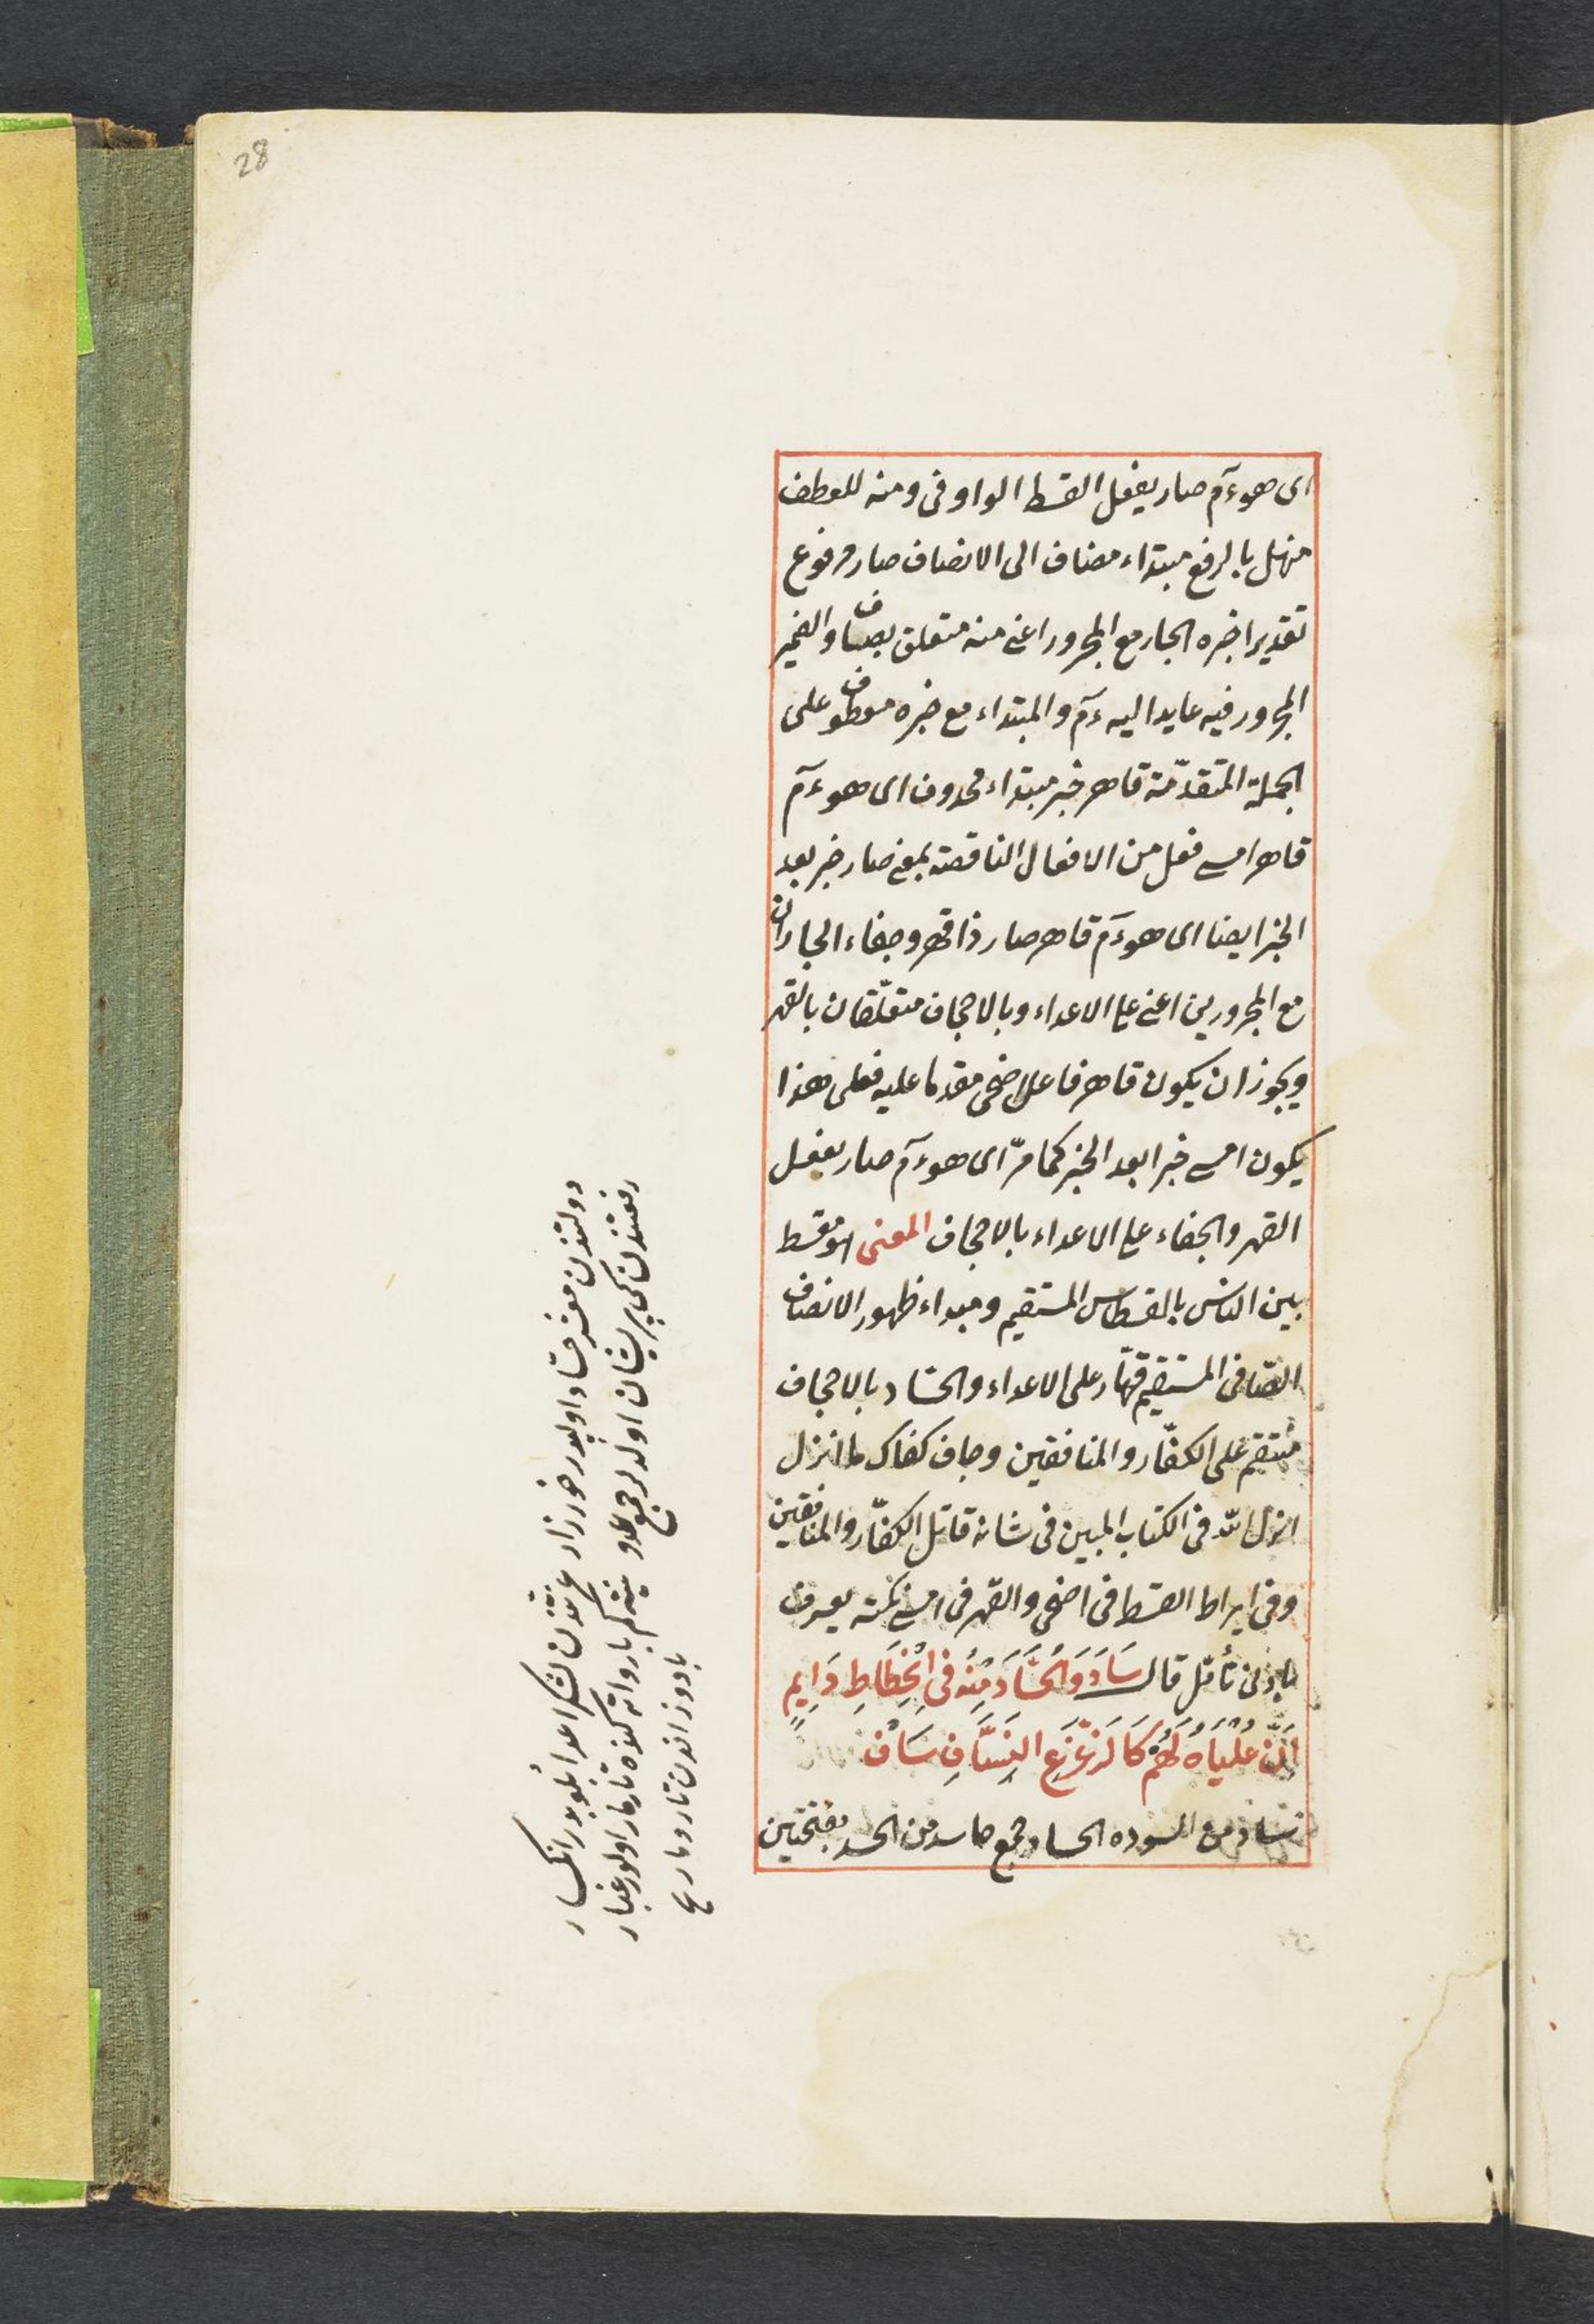 28
اى هو ءم صار يفعل القسط الواو فى ومنه للعطف
منهل بالرفع مبتداء مضاف الى الانصاف صار مرفوع
تقديرا خبره الجار مع المجرور اعنى منه متعلق بصاف والضمير
المجرور فيه عايد اليه ءم والمبتداء مع خبره معطوف على
الجملة المتقدّمة قاهر خبر مبتداء محذوف اى هو ءم
قاهر امسى فعل من الافعال الناقصة بمعنى صار خبر بعد
الخبر ايضا اى هو ءم قاهر صار ذا قهر وجفاء الجاران
مع المجرورين اعنى على الاعداء وبالاجحاف متعلّقان بالقهر
ويجوز ان يكون قاهر فاعل اضحى مقدما عليه فعلى هذا
يكون امسى خبرا بعد الخبر كما مرّ اى هو ءم صار يفعل
القهر والجفاء على الاعداء بالاجحاف المعنى هو مقسط
بين الناس بالقسطاس المستقيم ومبداء ظهور الانصاف
الصّافى المستقيم قهّار على الاعداء والحسّاد بالاجحاف
منتقم على الكفّار والمنافقين وجاف كفاك ما انزل
انزل اللّه فى الكتاب المبين فى شانه قاتل الكفّار والمنافقين
وفى ايراط القسط فى اضحى والقهر فى امسى نكتة يعرف
بادنى تأمّل قال سَادَ وَالحُسَّادَ مِنْهُ فِى انْخِطَاطِ دَايِمٍ
اَنَّ عُلْيَاهُ لَهُمْ كَالزَّعْزَعِ النَّسَّافِ سَافْ
ساد من السوده الحساد جمع حاسد من الحسد بفتحتين
دولتندن مفسد حسّاد اوليدر خور زاد عزّتندن لشكر اعدا بلويدر انكسار
رفعتندن كم پريشان اولدلر جمع عدو نيتكم باروانه كلاه تارمار اولور غبار
باد وزاندن تار ومار ع